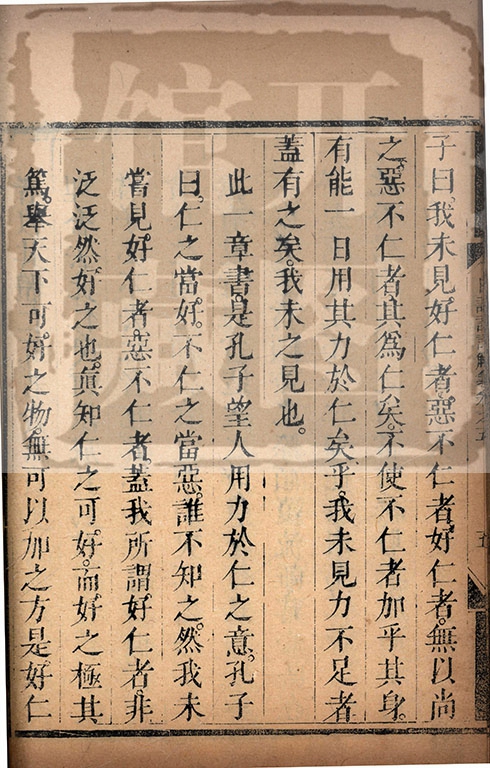 子曰我未見好仁者惡不仁者好仁者無以尚
之惡不仁者其為仁矣不使不仁者加乎其身
有能一日用其力於仁矣乎我未見力不足者
蓋有之矣我未之見也
此一章書是孔子望人用力於仁之意孔子
曰仁之當好不仁之當惡誰不知之然我未
嘗見好仁者惡不仁者蓋我所謂好仁者非
泛泛然好之也真知仁之可好而好之極其
篤舉天下可好之物無可以加之方是好仁